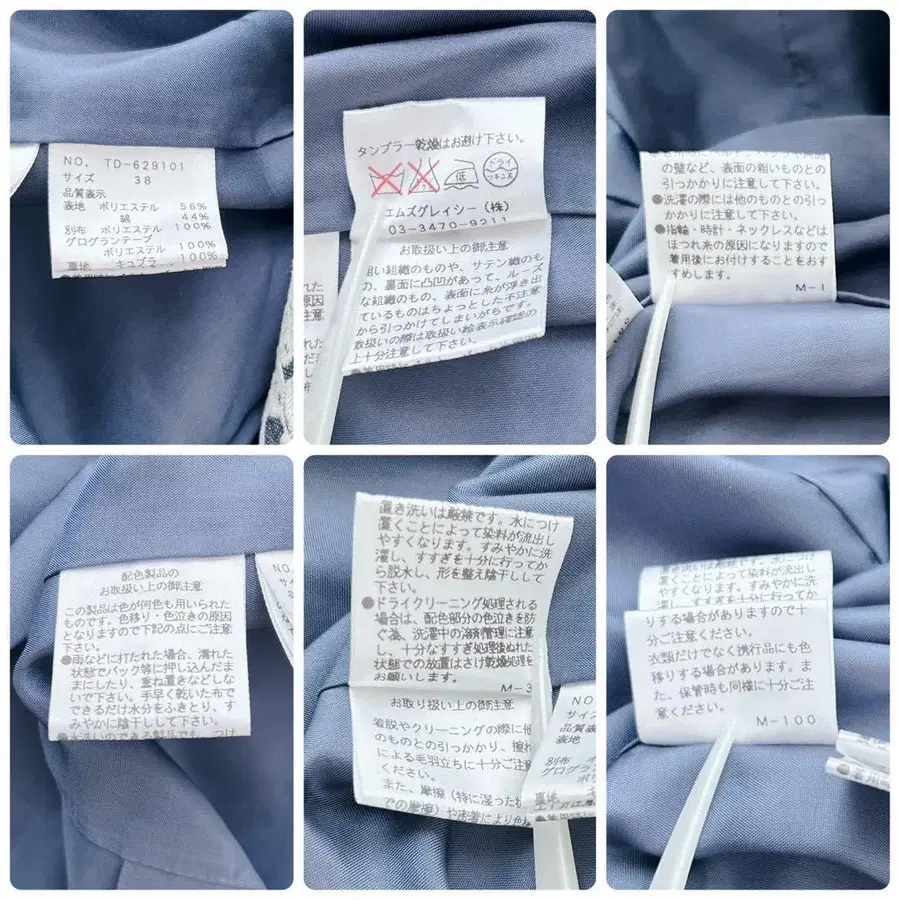 NO. TD-629101
サイズ 38
品質表示
表地 ポリエステル 56%
綿 44%
別布 ポリエステル 100%
グログランテープ
ポリエステル 100%
裏地 キュプラ 100%
タンブラー乾燥はお避け下さい。
低 ドライ
エムズグレイシー(株)
03-3470-9211
お取扱い上の御注意
粗い組織のものや、サテン織のも
の、裏面に凸凹があって、ルーズ
な組織のもの、表面に糸が浮き出
ているものはちょっとした不注意
から引っかけてしまいがちです。
お取扱いの際は取扱い絵表示確認の
上十分注意して下さい。
の壁など、表面の粗いものとの
引っかかりに注意して下さい。
●洗濯の際には他のものとの引っ
かかりに注意して下さい。
●指輪・時計・ネックレスなどは
ほつれ糸の原因になりますので
着用後にお付けすることをおす
すめします。
M-1
配色製品の
お取扱い上の御注意
この製品は色が何色も用いられた
ものです。色移り・色泣きの原因
となりますので下記の点にご注意
下さい。
●雨などに打たれた場合、濡れた
状態でバック等に押し込んだま
まにしたり、重ね置きなどしな
いで下さい。手早く乾いた布で
できるだけ水分をふきとり、す
みやかに陰干しして下さい。
●水洗いのできる製品でも、つけ
置き洗いは厳禁です。水につけ
置くことによって染料が流出し
やすくなります。すみやかに洗
濯し、すすぎを十分に行ってか
ら脱水し、形を整え陰干しして
下さい。
●ドライクリーニング処理される
場合は、配色部分の色泣きを防
ぐ為、洗濯中の溶剤管理に注意
し、十分なすすぎ処理後ぬれた
状態での放置はさけ乾燥処理を
お願いします。
M-3
お取り扱い上の御注意
着脱やクリーニングの際に他
のものとの引っかかり、擦れ
による毛羽立ちに十分ご注意
ください。
また、摩擦(特に湿ったも
での摩擦)や密着により色移
NO.
サイズ
品質
表地
別布 ポ
グログラン
ポリ
裏地 キ
置き洗いは厳禁です。水につ
置くことによって染料が流出し
やすくなります。すみやかに洗
濯し、すすぎを十分に行ってか
りする場合がありますので十
分ご注意ください。
衣類だけでなく携行品にも色
移りする場合があります。ま
た、保管時も同様に十分ご注
意ください。
M-100